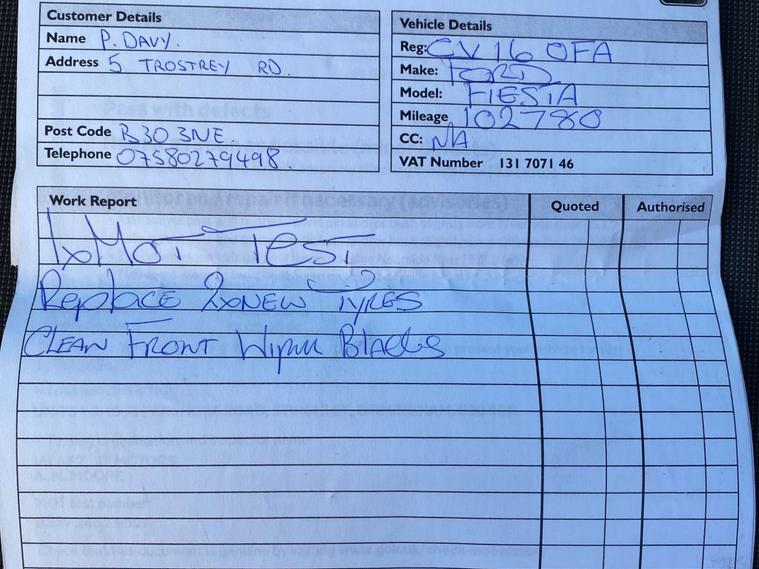 Customer Details
Name P. DAVY.
Address 5 TROSTREY RD.
Post Code B30 3NE.
Telephone 07580279498.
Vehicle Details
Reg: CV16 OFA
Make: FORD
Model: FIESTA
Mileage 102780
CC: N/A
VAT Number 131 7071 46
Work Report Quoted Authorised
1xMOT TEST
REPLACE 2xNEW TYRES
CLEAN FRONT WIPER BLADES
Pass with defects
Monitor and repair if necessary (advisories)